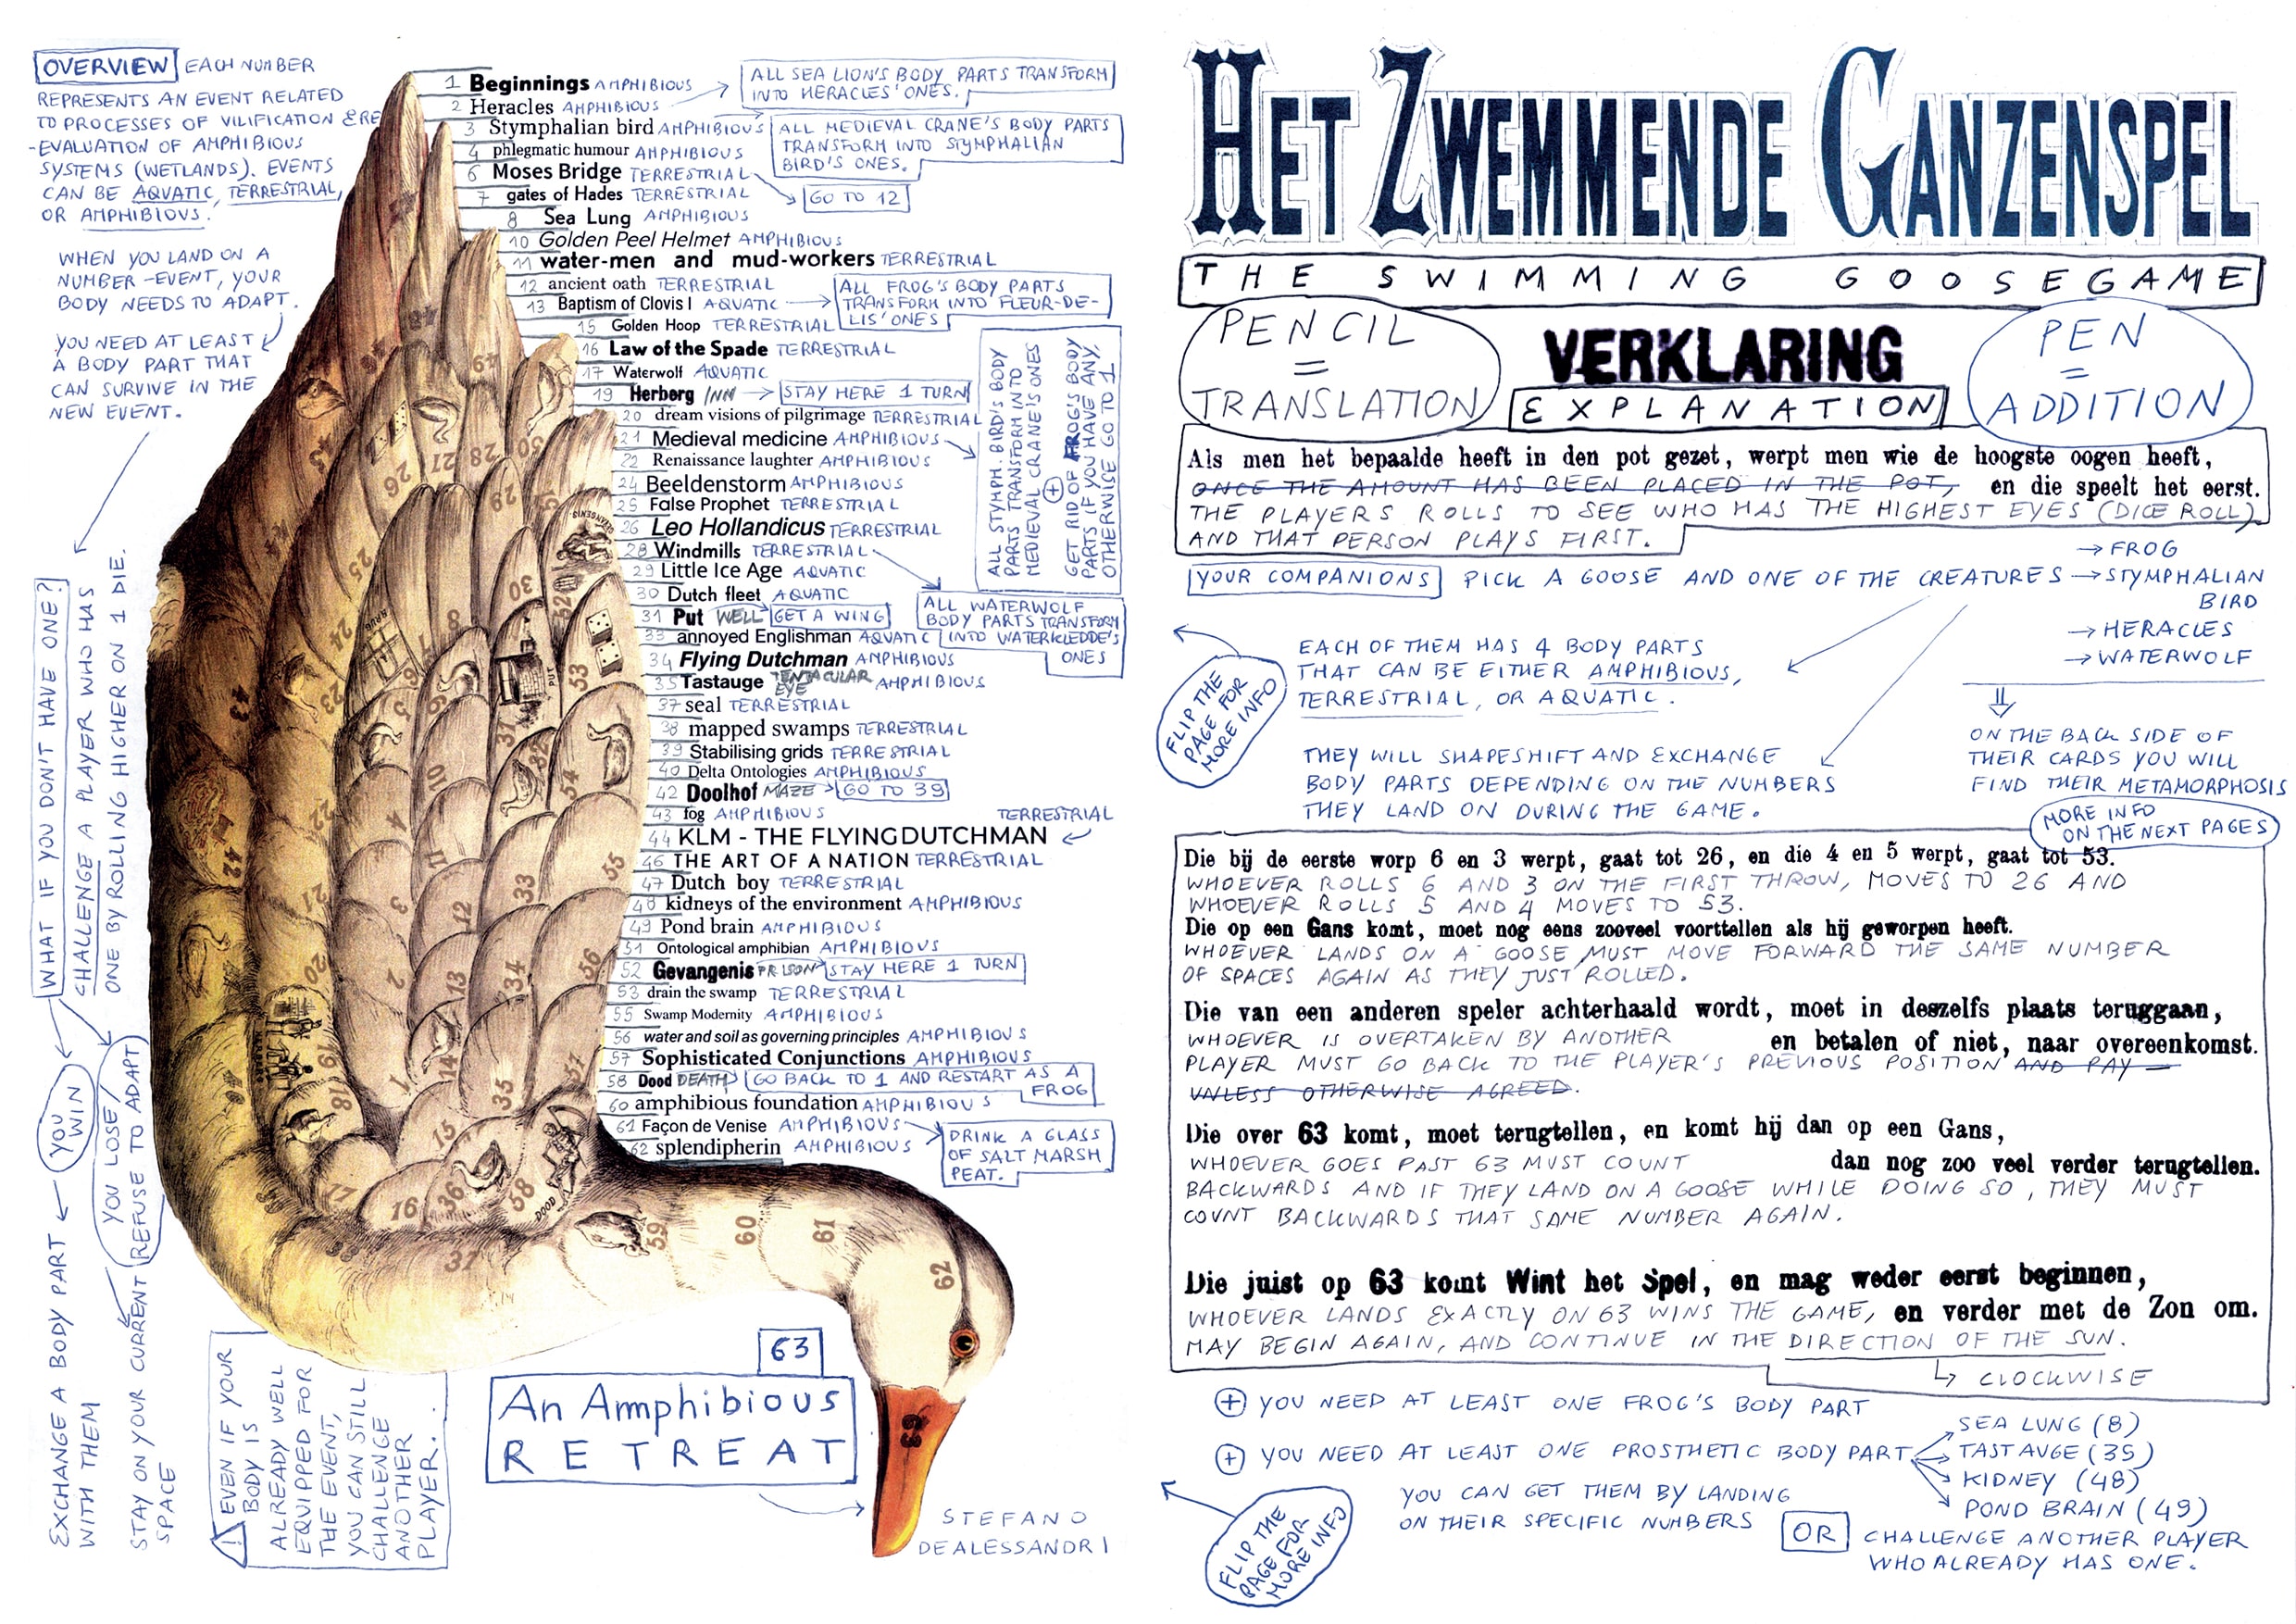 OVERVIEW EACH NUMBER
REPRESENTS AN EVENT RELATED
TO PROCESSES OF VILIFICATION & RE
-EVALUATION OF AMPHIBIOUS
SYSTEMS (WETLANDS). EVENTS
CAN BE AQUATIC, TERRESTRIAL,
OR AMPHIBIOUS.
WHEN YOU LAND ON A
NUMBER-EVENT, YOUR
BODY NEEDS TO ADAPT.
YOU NEED AT LEAST
A BODY PART THAT
CAN SURVIVE IN THE
NEW EVENT.
WHAT IF YOU DON'T HAVE ONE?
CHALLENGE A PLAYER WHO HAS
ONE BY ROLLING HIGHER ON 1 DIE.
YOU WIN
EXCHANGE A BODY PART
WITH THEM
YOU LOSE/
REFUSE TO ADAPT
STAY ON YOUR CURRENT
SPACE
EVEN IF YOUR
BODY IS
ALREADY WELL
EQUIPPED FOR
THE EVENT,
YOU CAN STILL
CHALLENGE
ANOTHER
PLAYER..
1 Beginnings AMPHIBIOUS
2 Heracles AMPHIBIOUS
ALL SEA LION'S BODY PARTS TRANSFORM
INTO HERACLES' ONES.
3 Stymphalian bird AMPHIBIOUS
ALL MEDIEVAL CRANE'S BODY PARTS
TRANSFORM INTO STYMPHALIAN
BIRD'S ONES.
4 phlegmatic humour AMPHIBIOUS
6 Moses Bridge TERRESTRIAL
GO TO 12
7 gates of Hades TERRESTRIAL
8 Sea Lung AMPHIBIOUS
10 Golden Peel Helmet AMPHIBIOUS
11 water-men and mud-workers TERRESTRIAL
12 ancient oath TERRESTRIAL
13 Baptism of Clovis I AQUATIC
ALL FROG'S BODY PARTS
TRANSFORM INTO FLEUR-DE-
LIS' ONES
15 Golden Hoop TERRESTRIAL
16 Law of the Spade TERRESTRIAL
17 Waterwolf AQUATIC
19 Herberg INN STAY HERE 1 TURN
20 dream visions of pilgrimage TERRESTRIAL
21 Medieval medicine AMPHIBIOUS
ALL STYMPH. BIRD'S BODY
PARTS TRANSFORM INTO
MEDIEVAL CRANE'S ONES
+
GET RID OF FROG'S BODY
PARTS (IF YOU HAVE ANY,
OTHERWISE GO TO 1
22 Renaissance laughter AMPHIBIOUS
24 Beeldenstorm AMPHIBIOUS
25 False Prophet TERRESTRIAL
26 Leo Hollandicus TERRESTRIAL
28 Windmills TERRESTRIAL
29 Little Ice Age AQUATIC
30 Dutch fleet AQUATIC
ALL WATERWOLF
BODY PARTS TRANSFORM
INTO WATERKLEDDE'S
ONES
31 Put WELL GET A WING
33 annoyed Englishman AQUATIC
34 Flying Dutchman AMPHIBIOUS
35 Tastauge TENTACULAR EYE AMPHIBIOUS
37 seal TERRESTRIAL
38 mapped swamps TERRESTRIAL
39 Stabilising grids TERRESTRIAL
40 Delta Ontologies AMPHIBIOUS
42 Doolhof MAZE GO TO 39
43 fog AMPHIBIOUS
44 KLM - THE FLYING DUTCHMAN TERRESTRIAL
46 THE ART OF A NATION TERRESTRIAL
47 Dutch boy TERRESTRIAL
48 kidneys of the environment AMPHIBIOUS
49 Pond brain AMPHIBIOUS
51 Ontological amphibian AMPHIBIOUS
52 Gevangenis PRISON STAY HERE 1 TURN
53 drain the swamp TERRESTRIAL
55 Swamp Modernity AMPHIBIOUS
56 water and soil as governing principles AMPHIBIOUS
57 Sophisticated Conjunctions AMPHIBIOUS
58 Dood DEATH GO BACK TO 1 AND RESTART AS A
FROG
60 amphibious foundation AMPHIBIOUS
61 Façon de Venise AMPHIBIOUS
62 splendipherin AMPHIBIOUS
DRINK A GLASS
OF SALT MARSH
PEAT.
63
An Amphibious
RETREAT
STEFANO
DEALESSANDRI
HET ZWEMMENDE GANZENSPEL
THE SWIMMING GOOSEGAME
PENCIL
=
TRANSLATION
VERKLARING
EXPLANATION
PEN
=
ADDITION
Als men het bepaalde heeft in den pot gezet, werpt men wie de hoogste oogen heeft,
ONCE THE AMOUNT HAS BEEN PLACED IN THE POT, en die speelt het eerst.
THE PLAYERS ROLLS TO SEE WHO HAS THE HIGHEST EYES (DICE ROLL)
AND THAT PERSON PLAYS FIRST.
YOUR COMPANIONS PICK A GOOSE AND ONE OF THE CREATURES
→ FROG
→ STYMPHALIAN
BIRD
→ HERACLES
→ WATERWOLF
FLIP THE
PAGE FOR
MORE INFO
EACH OF THEM HAS 4 BODY PARTS
THAT CAN BE EITHER AMPHIBIOUS,
TERRESTRIAL, OR AQUATIC.
THEY WILL SHAPESHIFT AND EXCHANGE
BODY PARTS DEPENDING ON THE NUMBERS
THEY LAND ON DURING THE GAME.
ON THE BACK SIDE OF
THEIR CARDS YOU WILL
FIND THEIR METAMORPHOSIS
MORE INFO
ON THE NEXT PAGES
Die bij de eerste worp 6 en 3 werpt, gaat tot 26, en die 4 en 5 werpt, gaat tot 53.
WHOEVER ROLLS 6 AND 3 ON THE FIRST THROW, MOVES TO 26 AND
WHOEVER ROLLS 5 AND 4 MOVES TO 53.
Die op een Gans komt, moet nog eens zooveel voorttellen als hij geworpen heeft.
WHOEVER LANDS ON A GOOSE MUST MOVE FORWARD THE SAME NUMBER
OF SPACES AGAIN AS THEY JUST ROLLED.
Die van een anderen speler achterhaald wordt, moet in deszelfs plaats teruggaan,
WHOEVER IS OVERTAKEN BY ANOTHER en betalen of niet, naar overeenkomst.
PLAYER MUST GO BACK TO THE PLAYER'S PREVIOUS POSITION AND PAY
UNLESS OTHERWISE AGREED.
Die over 63 komt, moet terugtellen, en komt hij dan op een Gans,
WHOEVER GOES PAST 63 MUST COUNT dan nog zoo veel verder terugtellen.
BACKWARDS AND IF THEY LAND ON A GOOSE WHILE DOING SO, THEY MUST
COUNT BACKWARDS THAT SAME NUMBER AGAIN.
Die juist op 63 komt Wint het Spel, en mag weder eerst beginnen,
WHOEVER LANDS EXACTLY ON 63 WINS THE GAME, en verder met de Zon om.
MAY BEGIN AGAIN, AND CONTINUE IN THE DIRECTION OF THE SUN.
CLOCKWISE
+ YOU NEED AT LEAST ONE FROG'S BODY PART
+ YOU NEED AT LEAST ONE PROSTHETIC BODY PART
SEA LUNG (8)
TASTAUGE (35)
KIDNEY (48)
POND BRAIN (49)
YOU CAN GET THEM BY LANDING
ON THEIR SPECIFIC NUMBERS
OR CHALLENGE ANOTHER PLAYER
WHO ALREADY HAS ONE.
FLIP THE
PAGE FOR
MORE INFO